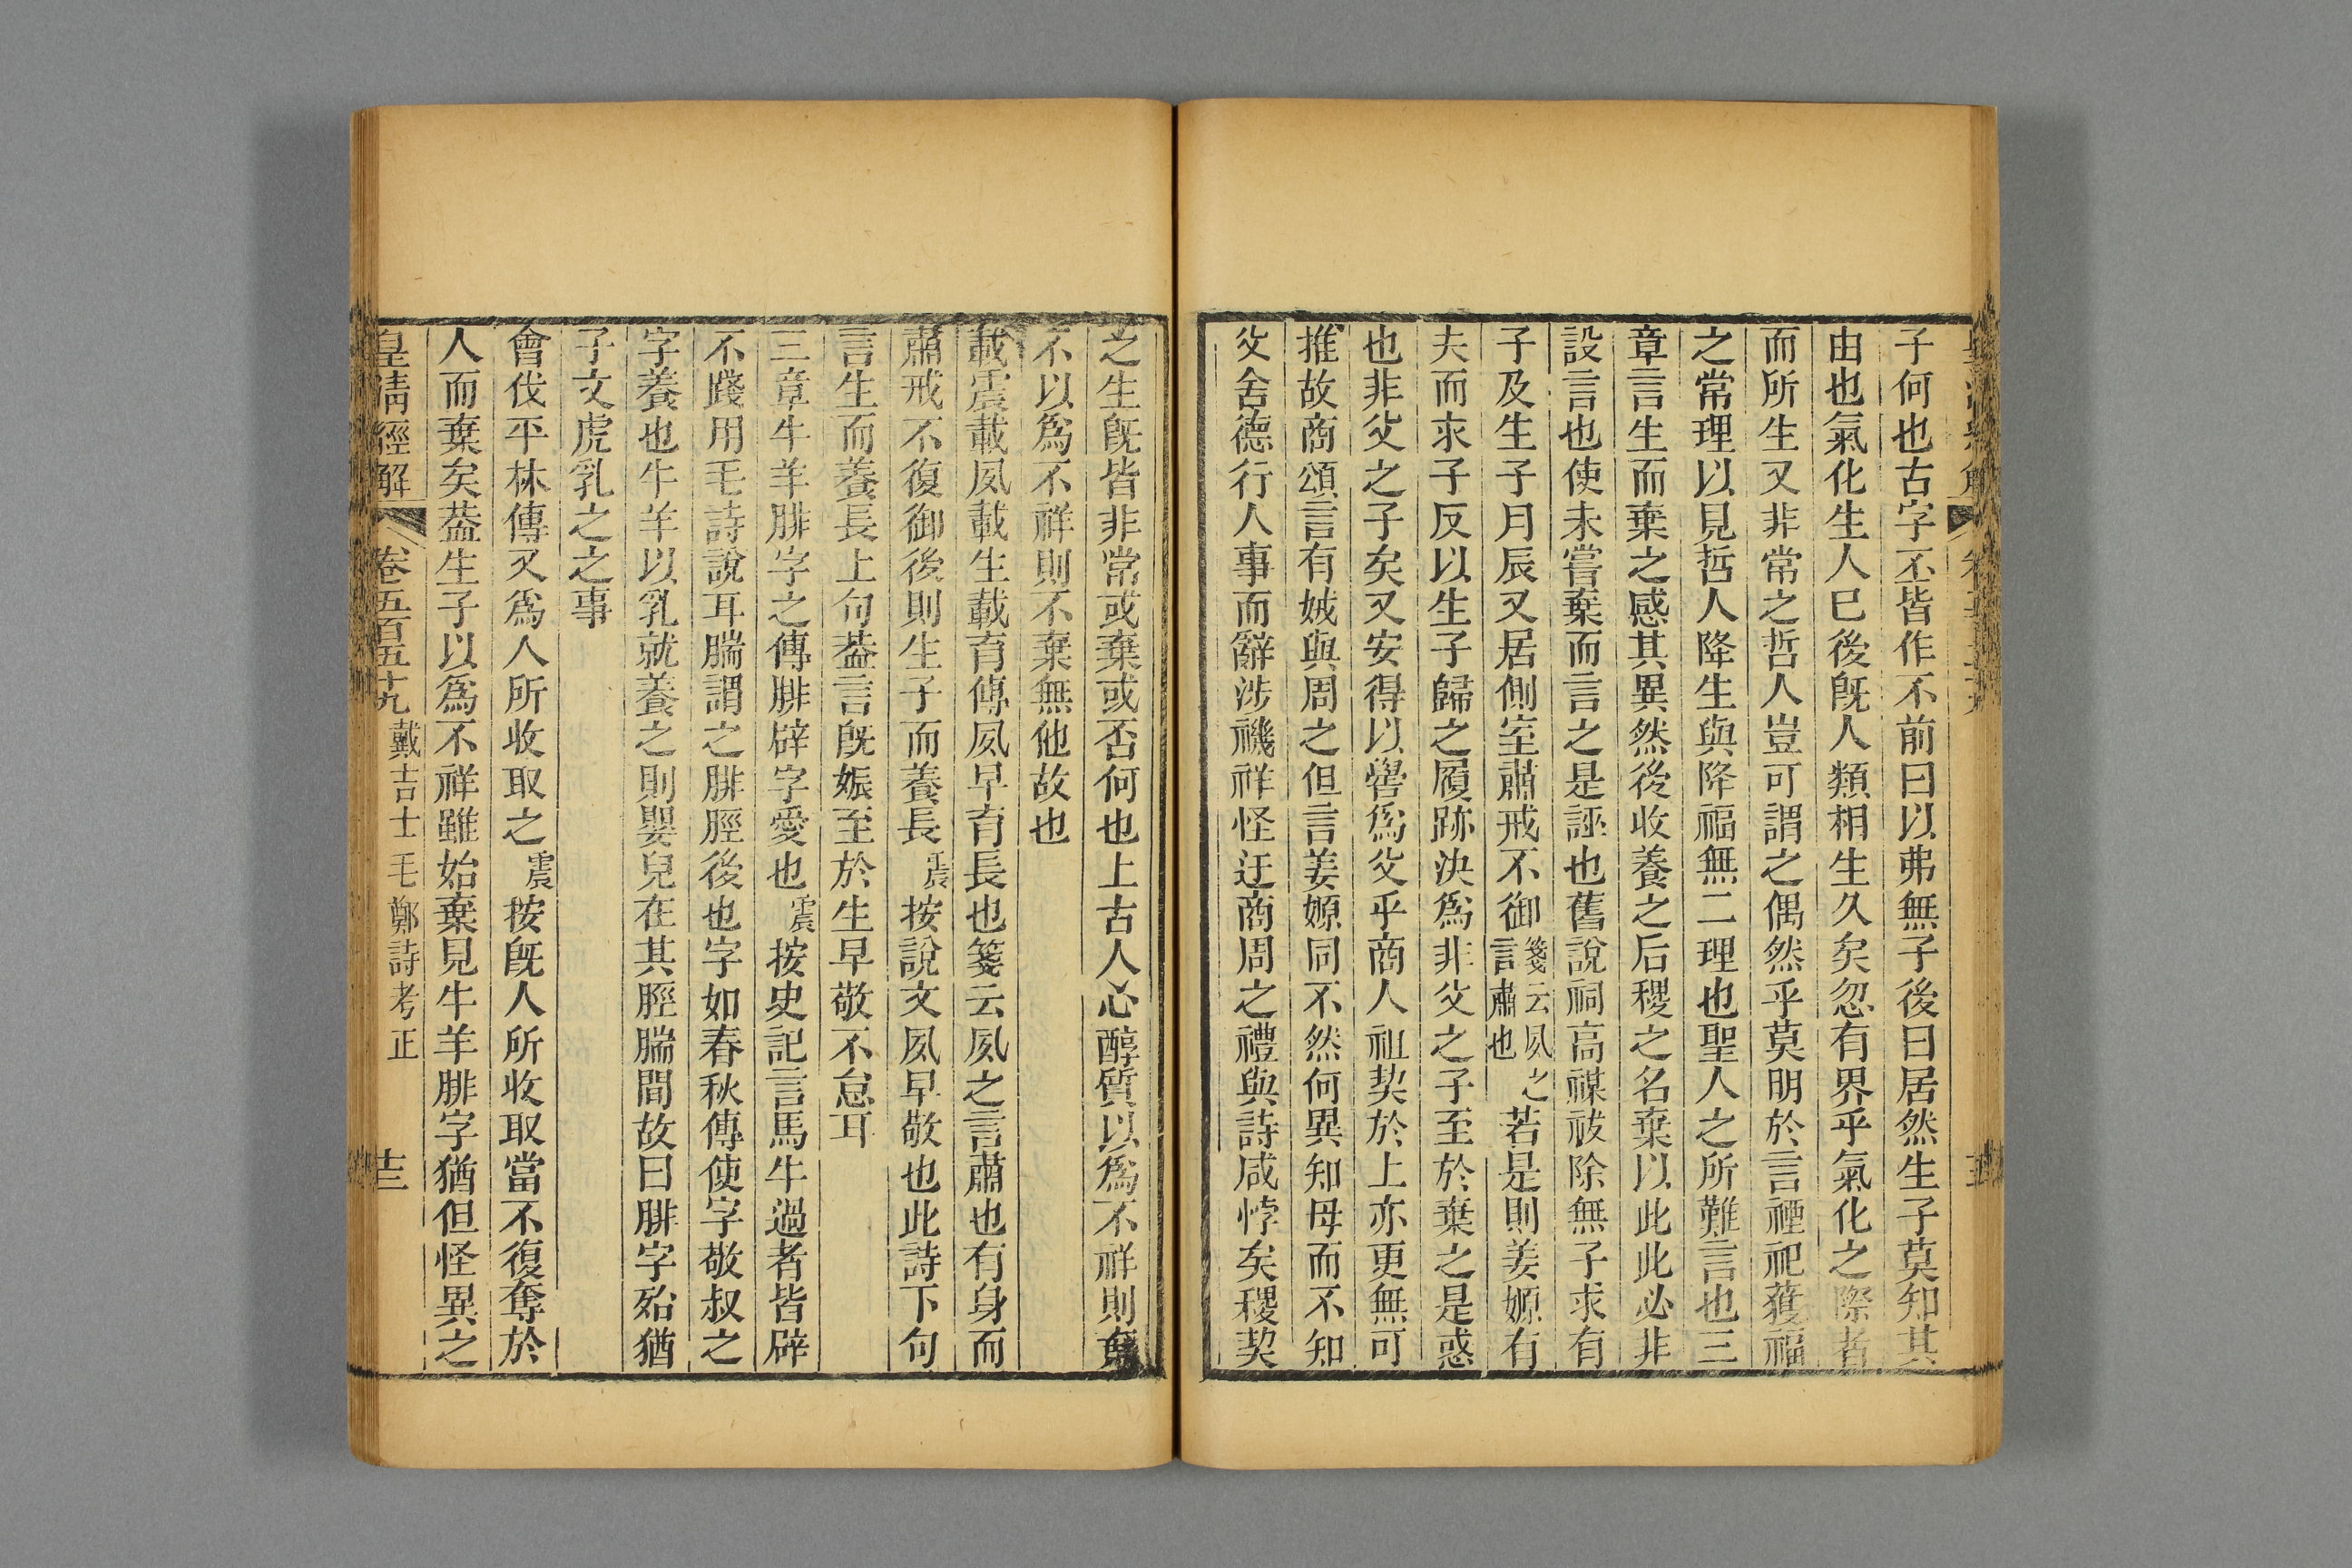 子何也古字丕皆作不前曰以弗無子後曰居然生子莫知其
由也氣化生人巳後旣人類相生久矣忽有界乎氣化之際者
而所生又非常之哲人豈可謂之偶然乎莫明於言禋祀獲福
之常理以見哲人降生與降福無二理也聖人之所難言也三
章言生而棄之感其異然後收養之后稷之名棄以此此必非
設言也使未嘗棄而言之是誣也舊說祠高禖祓除無子求有
子及生子月辰又居側室肅戒不御箋云夙之言肅也若是則姜嫄有
夫而求子反以生子歸之履跡決為非父之子至於棄之是惑
也非父之子矣又安得以嚳為父乎商人祖契於上亦更無可
推故商頌言有娀與周之但言姜嫄同不然何異知母而不知
父舍德行人事而辭涉禨祥怪迂商周之禮與詩咸悖矣稷契
之生旣皆非常或棄或否何也上古人心醇質以為不祥則棄
不以為不祥則不棄無他故也
載震載夙載生載育傳夙早育長也箋云夙之言肅也有身而
肅戒不復御後則生子而養長震按說文夙早敬也此詩下句
言生而養長上句葢言旣娠至於生早敬不怠耳
三章牛羊腓字之傳腓辟字愛也震按史記言馬牛過者皆辟
不踐用毛詩說耳腨謂之腓脛後也字如春秋傳使字敬叔之
字養也牛羊以乳就養之則嬰兒在其脛腨間故曰腓字殆猶
子文虎乳之之事
會伐平林傳又為人所收取之震按旣人所收取當不復奪於
人而棄矣葢生子以為不祥雖始棄見牛羊腓字猶但怪異之
皇清經解 卷五百五十九 戴吉士毛鄭詩考正 十三